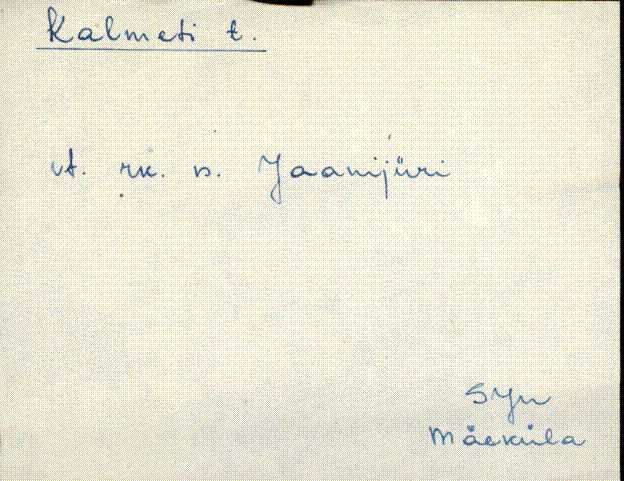 Kalmeti t.
vt. rk. s. Jaanijüri
SJn
Mäeküla